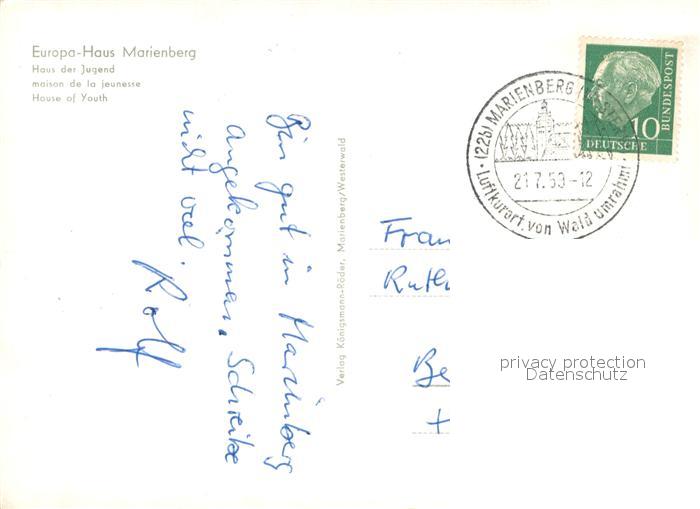 Europa-Haus Marienberg
Haus der Jugend
maison de la jeunesse
House of Youth
Bin gut in Marienberg
angekommen. Schreibe
nicht viel.
Rolf
Verlag Königsmann-Röder, Marienberg/Westerwald
Frau
Ruth
Be
+
(22b) MARIENBERG
21.7.59-12
Luftkurort von Wald umrahmt
10
DEUTSCHE
BUNDESPOST
privacy protection
Datenschutz